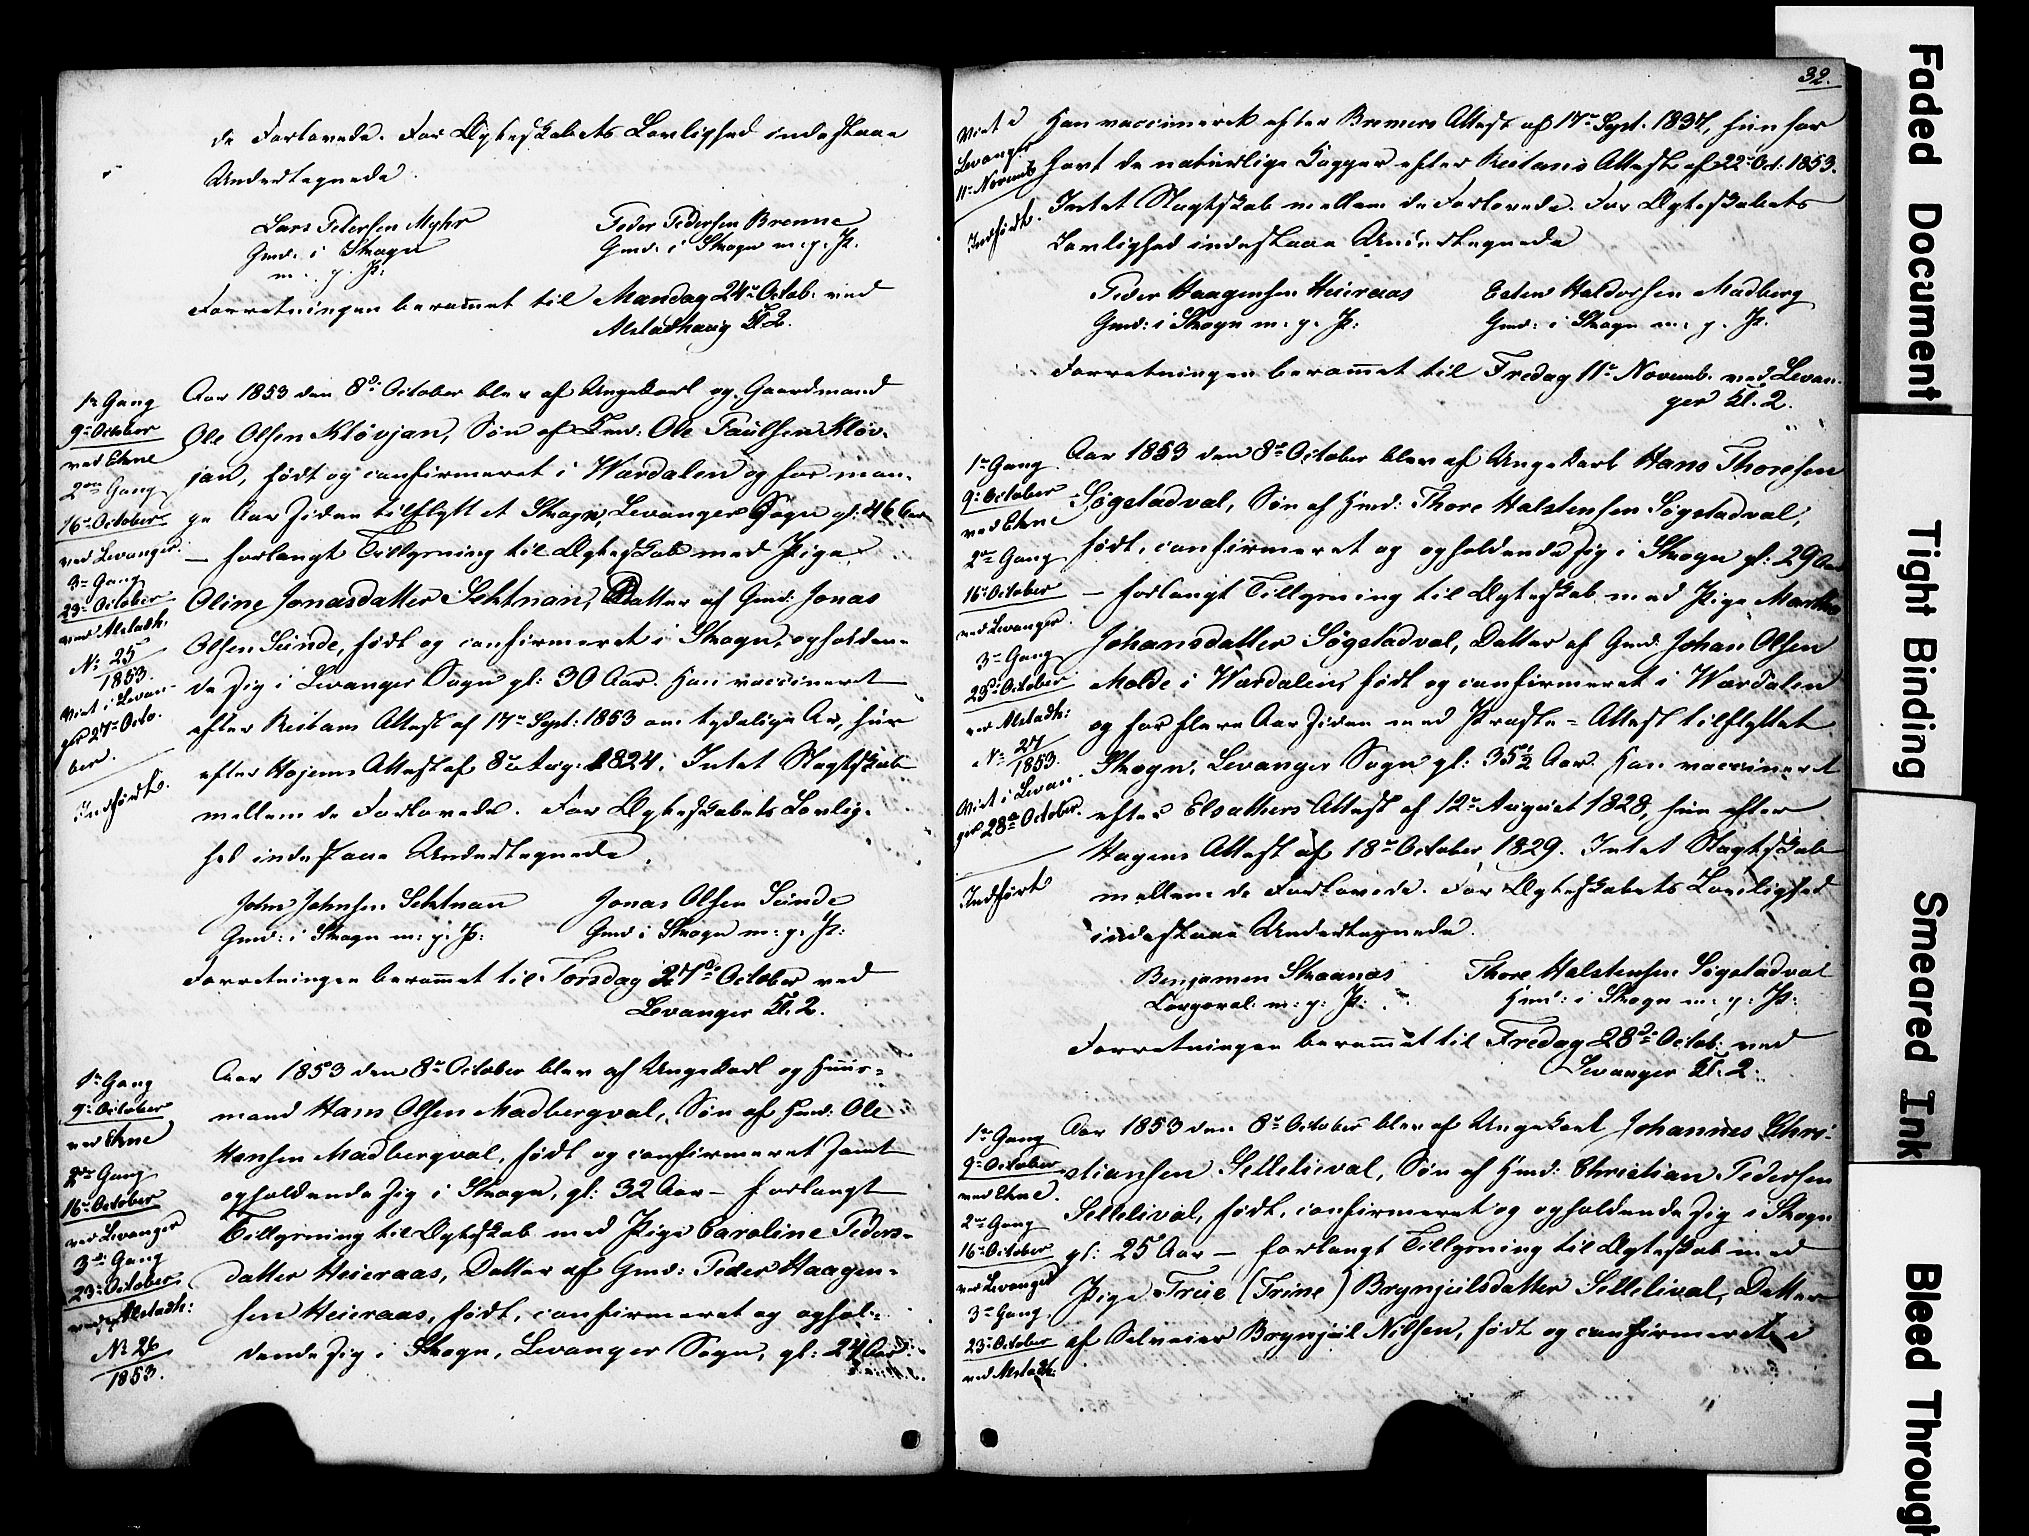 de Forlovede. For Ægteskabets Lovlighed indestaae
Undertegnede.
Lars Pedersen Myhr
Gmd: i Skogn
m. p. P:
Peder Pedersen Brenne
Gmd: i Skogn m: p. P.
Forretningen berammet til Mandag 24de Octob. ved
Alstadhaug Kl. 2.
1ste Gang
9de October
ved Ekne
2den Gang
16de October
ved Levanger.
3die Gang
23de October
ved Alstadh.
No 25
1853.
Viet i Levan-
ger 27de Octo-
ber.
Indført.
Aar 1853 den 8de October blev af Ungekarl og Gaardmand
Ole Olsen Kløvjan, Søn af Gmd: Ole Paulsen Kløv-
jan, født og confirmeret i Wærdalen og for man-
ge Aar siden tilflyttet Skogn, Levanger Sogn gl: 46 Aar
– forlangt Tillysning til Ægteskab med Pige
Oline Jonasdatter Sehtnan, Datter af Gmd: Jonas
Olsen Sunde, født og confirmeret i Skogn, opholden-
de sig i Levanger Sogn gl: 30 Aar. Han vaccineret
efter Reitans Attest af 17de Sept. 1853 om tydelige Ar, hun
efter Højems Attest af 8de Aug. 1824. Intet Slægtskab
mellem de Forlovede. For Ægteskabets Lovlig-
hed indestaae Undertegnede.
John Johnsen Sehtnan
Gmd: i Skogn m: p: P:
Jonas Olsen Sunde
Gmd i Skogn m: p: P:
Forretningen berammet til Torsdag 27de October ved
Levanger Kl. 2.
1ste Gang
9de October
ved Ekne
2den Gang
16de October
ved Levanger
3die Gang
23de October
ved Alstadh:
No 26
1853.
Aar 1853 den 8de October blev af Ungekarl og Huus-
mand Hans Olsen Madbergval, Søn af Hmd: Ole
Hansen Madbergval, født og confirmeret samt
opholdende sig i Skogn, gl: 32 Aar – forlangt
Tillysning til Ægteskab med Pige Caroline Peders-
datter Heieraas, Datter af Gmd: Peder Haagen-
sen Heieraas, født, confirmeret og ophol-
dende sig i Skogn, Levanger Sogn, gl: 24 Aar
32.
Viet i
Levanger
11te Novemb.
Indført.
Han vaccineret efter Bremers Attest af 17de Sept. 1837, hun har
havt de naturlige Kopper efter Reitans Attest af 22de Oct. 1853.
Intet Slægtskab mellem de Forlovede. For Ægteskabets
Lovlighed indestaae Undertegnede
Peder Haagensen Heieraas
Gmd: i Skogn m: p. P:
Esten Haldorsen Madberg
Gmd: i Skogn m: p. P.
Forretningen berammet til Fredag 11te Novemb. ved Levan-
ger Kl. 2.
1ste Gang
9de October
ved Ekne
2den Gang
16de October
ved Levanger.
3die Gang
23de October
ved Alstadh:
No 27
1853.
Viet i Levan-
ger 28de October.
Indført
Aar 1853 den 8de October blev af Ungekarl Hans Thoresen
Søgstadval, Søn af Hmd: Thore Halstensen Søgstadval,
født, confirmeret og opholdende sig i Skogn gl: 29 Aar
– forlangt Tillysning til Ægteskab med Pige Martha
Johansdatter Søgstadval, Datter af Gmd Johan Olsen
Molde i Wærdalen, født og confirmeret i Wærdalen
og for flere Aar siden med Præste-Attest tilflyttet
Skogn, Levanger Sogn gl: 35½ Aar. Han vaccineret
efter Elsathers Attest af 12te August 1828, hun efter
Hagens Attest af 18de October 1829. Intet Slægtskab
mellem de Forlovede. For Ægteskabets Lovlighed
indestaae Undertegnede.
Benjamin Skaanas
Corporal m: p: P:
Thore Halstensen Søgstadval
Hmd: i Skogn m: p: P:
Forretningen berammet til Fredag 28de Octob: ved
Levanger Kl. 2.
1ste Gang
9de October
ved Ekne.
2den Gang
16de October
ved Levanger
3die Gang
23de October
ved Alstadh.
Aar 1853 den 8de October blev af Ungekarl Johannes Chri-
stiansen Sellelieval, Søn af Hmd: Christian Pedersen
Sellelival, født, confirmeret og opholdende sig i Skogn
gl: 25 Aar – forlangt Tillysning til Ægteskab med
Pige Trüe (Trine) Brynjulsdatter Sellelival, Datter
af Selveier Brynjul Nilsen, født og confirmeret i
Faded Document
Tight Binding
Smeared Ink
Bleed Through